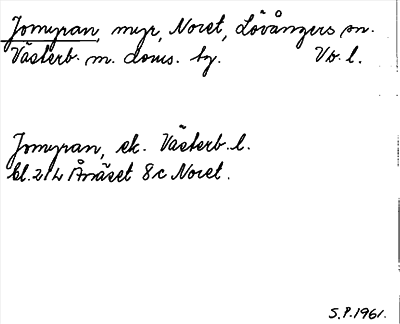 Jomyran, myr, Noret, Lövångers sn.
Västerb. m. doms. bg. Vb. l.
Jomyran, ek. Västerb. l.
bl. 214 Ånäset 8c Noret.
S.P. 1961.